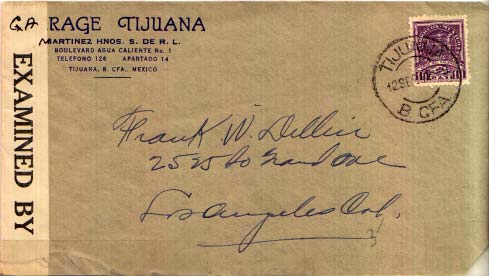 GARAGE TIJUANA
MARTINEZ HNOS. S. DE R. L.
BOULEVARD AGUA CALIENTE No. 1
TELEFONO 126 APARTADO 14
TIJUANA, B. CFA., MEXICO
EXAMINED BY
TIJUANA
12 SEP
B. CFA
10
Frank W.
2525 So Grand Ave
Los Angeles Cal.